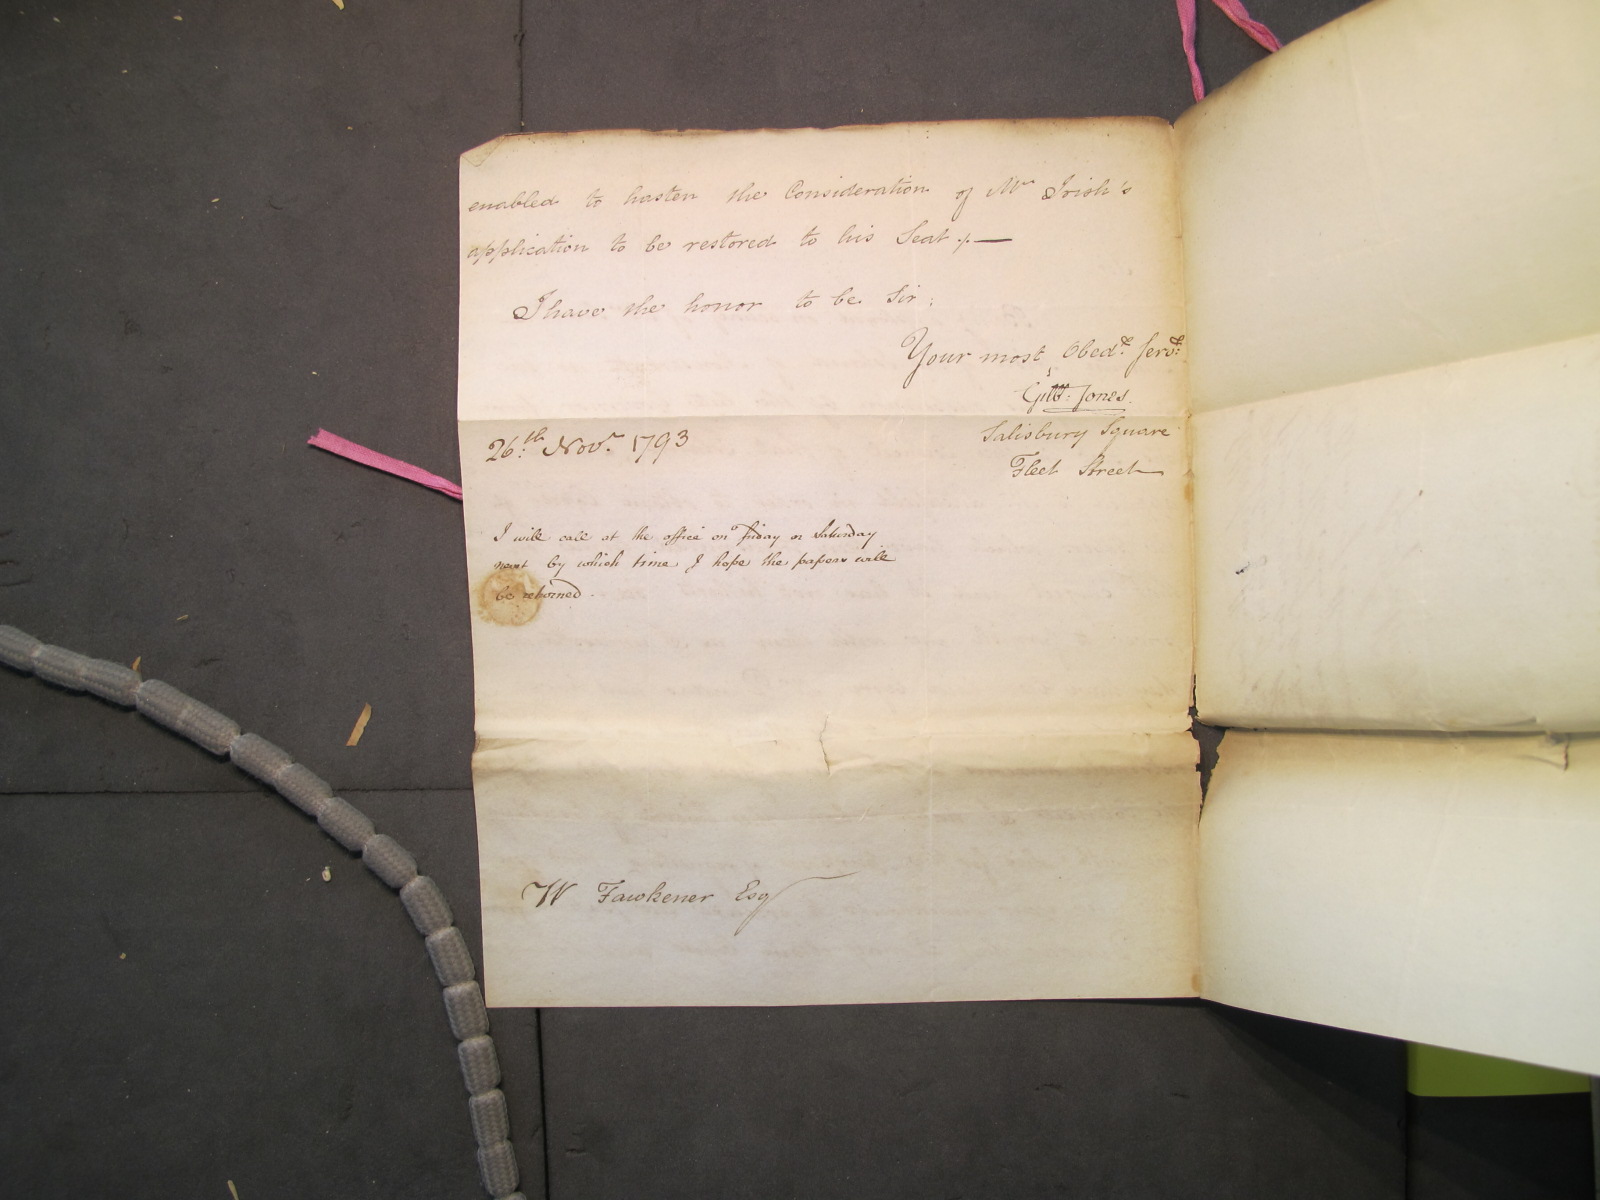 enabled to hasten the Consideration of Mr Irish's
application to be restored to his Seat ./.—
I have the honor to be Sir;
Your most Obedt. Servt.
Gilbt. Jones.
Salisbury Square
Fleet Street
26th. Novr. 1793
I will call at the office on Friday or Saturday
next by which time I hope the papers will
be returned.
W Fawkener Esq